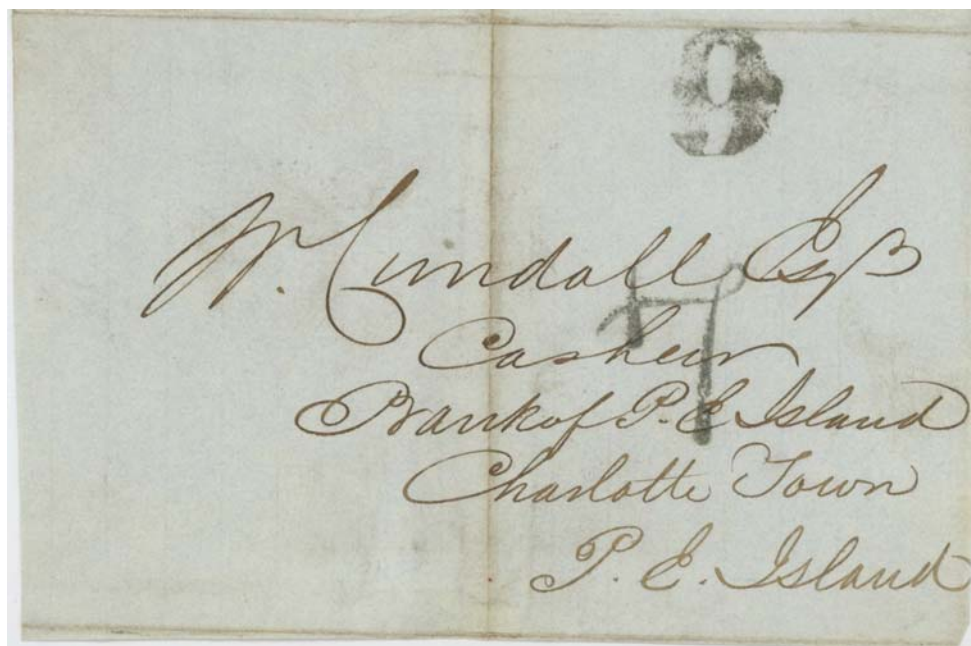 9
W. Cundall Esqr
Casheir
Bank of P. E Island
Charlotte Town
P. E. Island